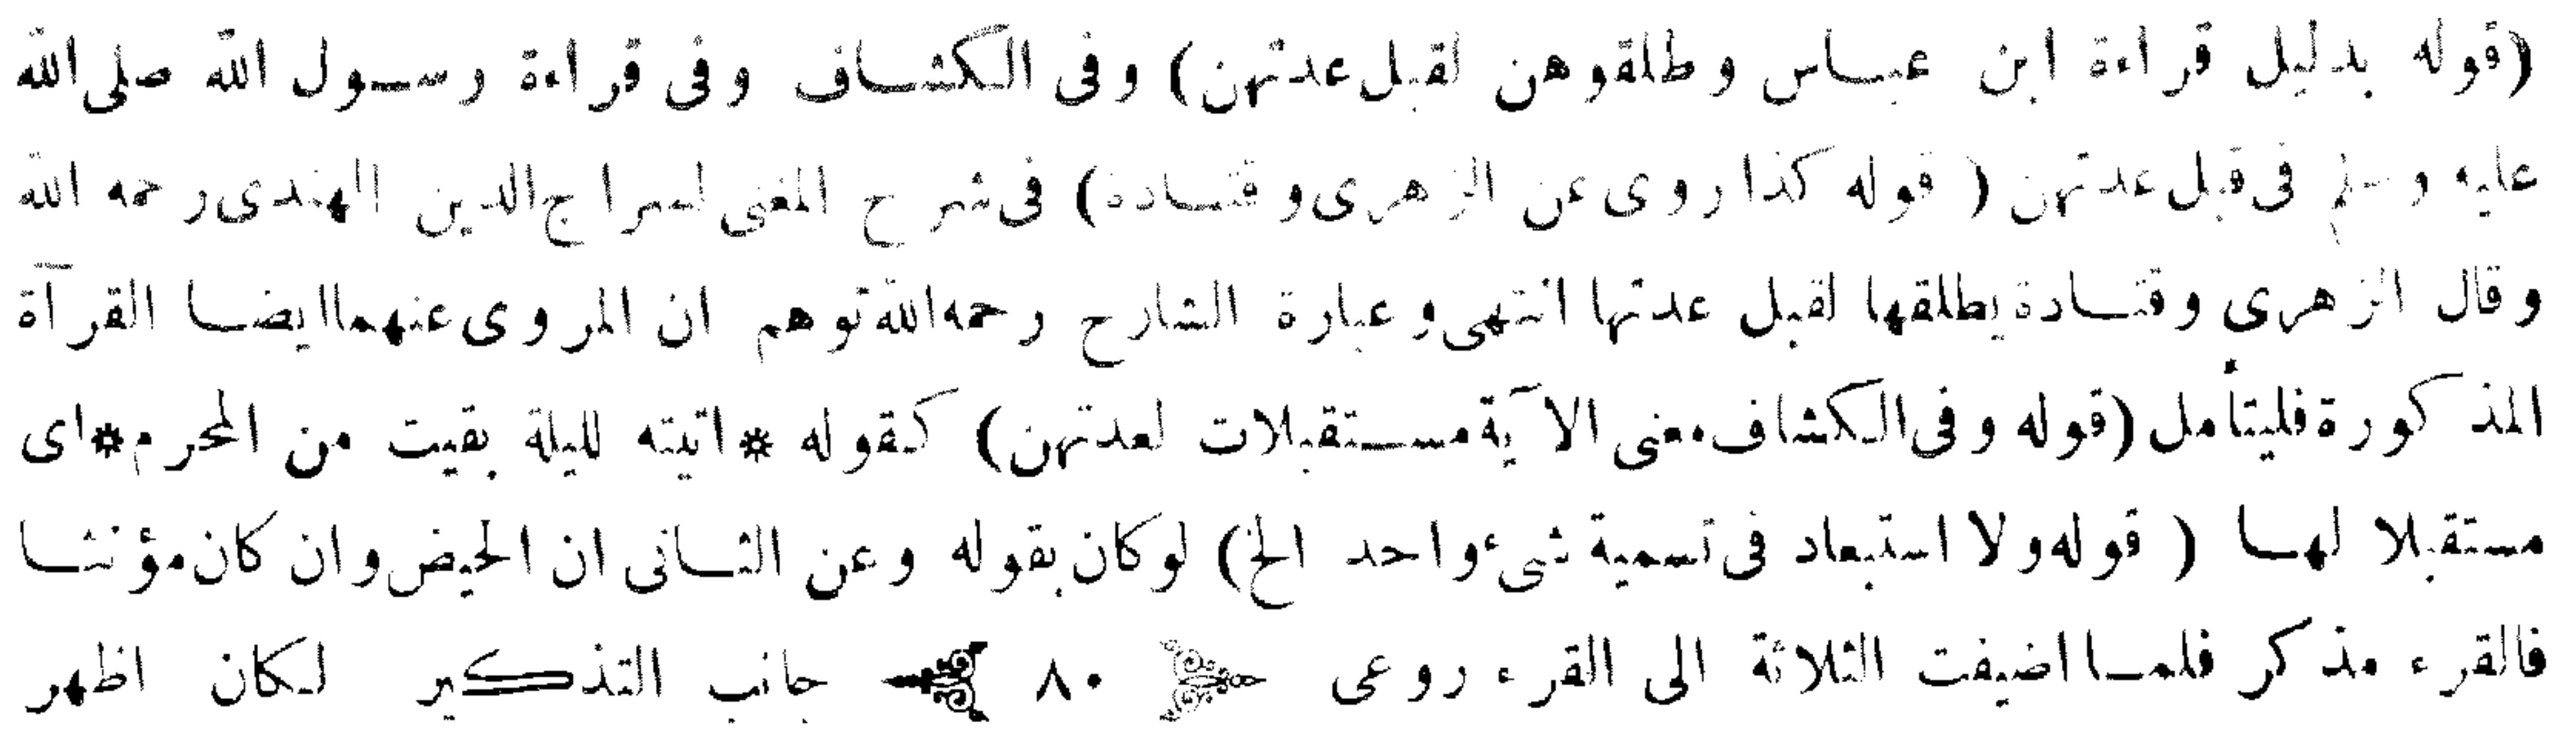 (قوله بدليل قراءة ابن عباس وطلقوهن لقبل عدتهن) وفى الكشاف وفى قراءة رسول الله صلى الله
عليه وسلم فى قبل عدتهن ( قوله كذا روى عن الزهرى وقتادة) فى شرح المغنى لسراج الدين الهندى رحمه الله
وقال الزهرى وقتادة يطلقها لقبل عدتها انتهى وعبارة الشارح رحمه الله توهم ان المروى عنهما ايضا القرآة
المذكورة فليتأمل (قوله وفى الكشاف معنى الآية مستقبلات لعدتهن) كقوله * اتيته لليلة بقيت من المحرم * اى
مستقبلا لها ( قوله ولا استبعاد فى تسمية شىء واحد الخ) لوكان بقوله وعن الثانى ان الحيض وان كان مؤنثا
فالقرء مذكر فلما اضيفت الثلاثة الى القرء روعى ٨٠ جانب التذكير لكان اظهر